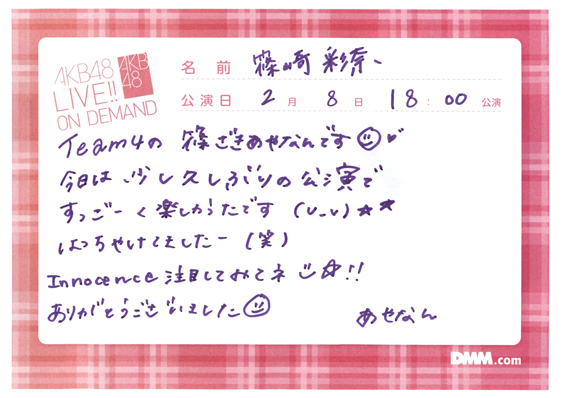 AKB48
LIVE!!
ON DEMAND
AKB
48
名前 篠崎彩奈
公演日 2月8日 18:00公演
Team4の 篠ざきあやなんです
今日は 少し久しぶりの公演で
すっごーく楽しかったです (v_v)★★
はっちゃけてましたー (笑)
Innocence 注目してみてネ ☆!!
ありがとうございました
あやなん
DMM.com